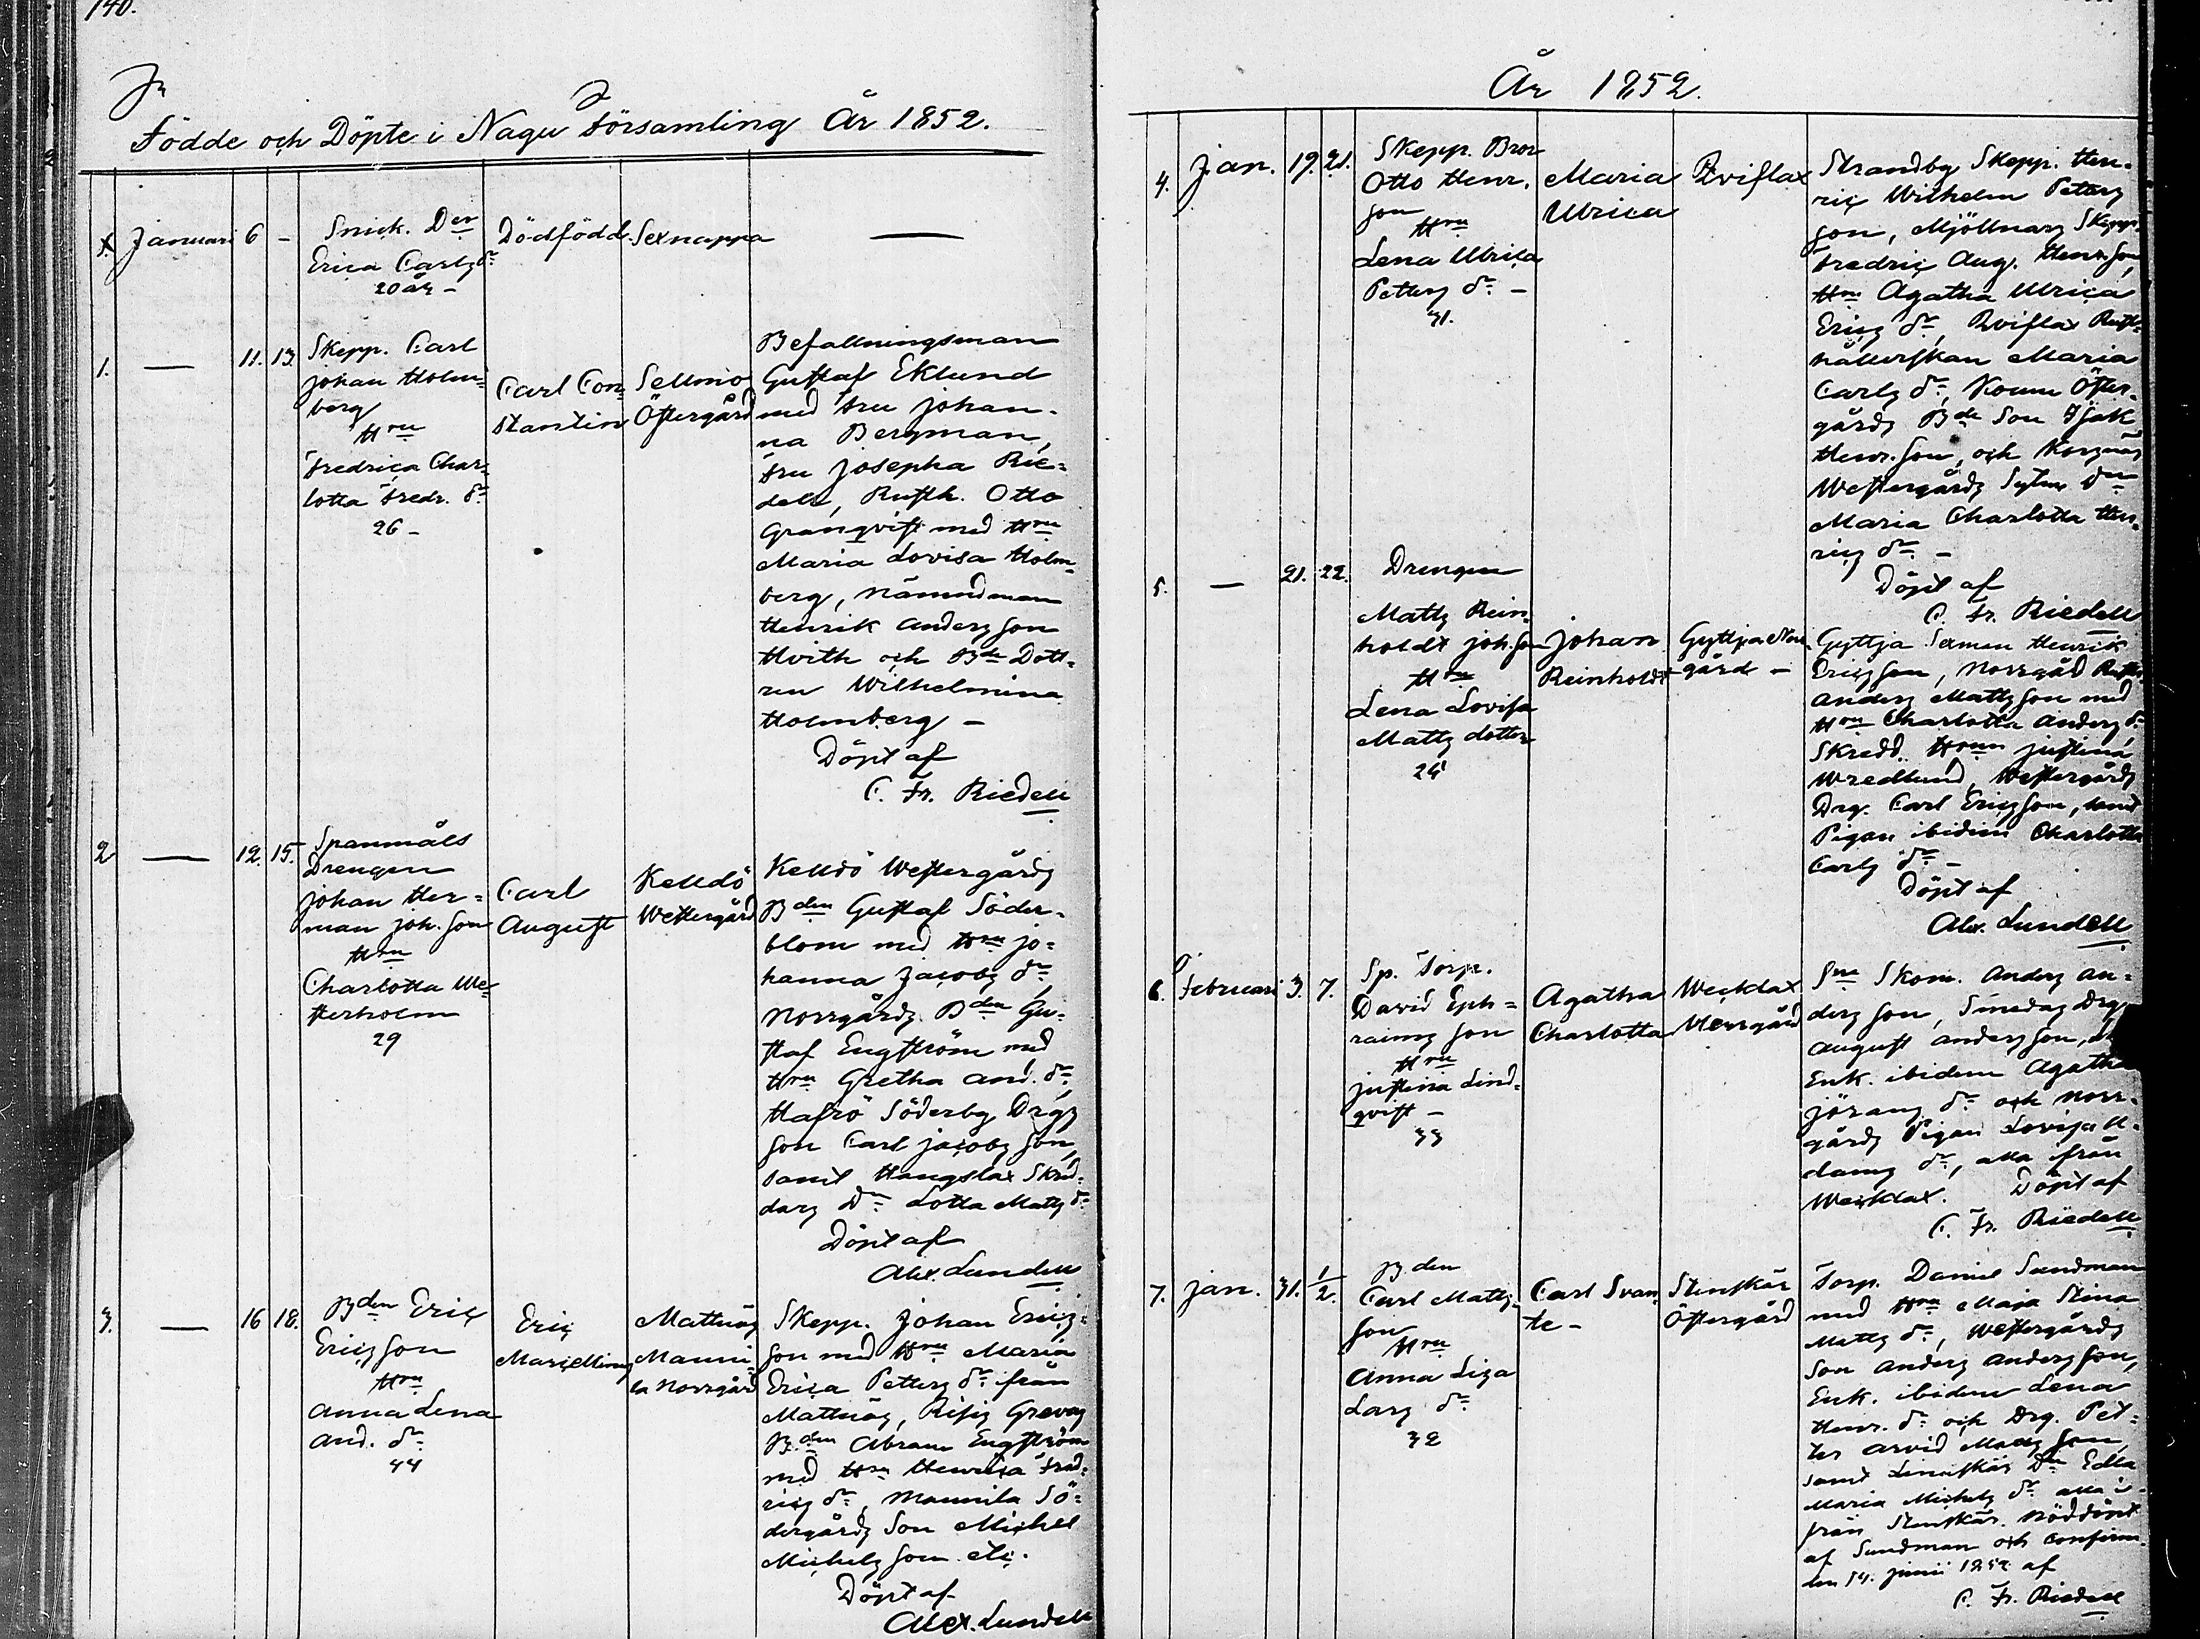 140.
Födde och Döpte i Nagu Församling År 1852.
x. Januari 6 - Snick. Der Dödfödd. Sexnappa —
Erica Carls dr
20 år -
1. — 11. 13. Skepp. Carl
Johan Holm-
berg
Hru
Fredrica Char-
lotta Fredr. dr
26 -
Carl Con-
stantin
Sellmo
Östergård
Befallningsman
Gustaf Eklund
med Fru Johan-
na Bergman,
Fru Josepha Rie-
dell, Rusth. Otto
Granqvist med Hru
Maria Lovisa Holm-
berg, Nämndman
Henrik Anders son
Hvith och Bde Dott-
ren Wilhelmina
Holmberg -
Döpt af
C. Fr. Riedell
2 — 12. 15. Spanmåls
Drengen
Johan Her-
man Joh. son
Hru
Charlotta We-
sterholm
29
Carl
August
Kelldö
Westergård
Kelldö Westergårds
Bden Gustaf Söder-
blom med Hru Jo-
hanna Jacobs dr,
Norrgårds Bden Gu-
staf Engström med
Hru Gretha And. dr,
Hafrö Söderby Drgs
son Carl Jacobs son,
samt Hangslax Skräd-
dars Dr Lotta Matts dr
Döpt af
Alex. Lundell
3. — 16 18. Bden Eric
Erics son
Hru
Anna Lena
And. dr
44
Eric
Marcellinus
Mattnäs
Manni-
la Norrgård
Skepp. Johan Erics-
son med Hru Maria
Erica Petters dr från
Mattnäs, Risis Grevas
Bden Abram Engström
med Hru Henrica Fred-
rics dr, Mannila Sö-
dergårds Son Michel
Michels son etc.
Döpt af
Alex. Lundell
År 1852.
4. Jan. 19. 21. Skepp. Bror
Otto Henr.
son
Hru
Lena Ulrica
Petters dr -
31.
Maria
Ulrica
Zviflax
Strandby Skepp. Hen-
ric Wilhelm Petters
son, Mjöllnars Skepp.
Fredric Aug. Henr. son,
Hru Agatha Ulrica
Erics dr, Rust-
hållerskan Maria
Carls dr, Öster-
gårds Bde Son Isak
Henr. son, och
Westergårds
Maria Charlotta Hen-
rics dr -
Döpt af
C. Fr. Riedell
5. — 21. 22. Drengen
Matts Rein-
holdt Joh. son
Hru
Lena Lovisa
Matts dotter
24
Johan
Reinholdt
Gyttja Norr-
gård -
Gyttja Henrik
Erics son, Norrgård Rusth.
Anders Matts son med
Hru Charlotta Anders dr,
Skrädd. Hrun Justina
Wredlund, Westergårds
Drg. Carl Erics son, samt
Pigan ibidem Charlotta
Carls dr -
Döpt af
Alex. Lundell
6. Februari 3. 7. Sp. Torp.
David Eph-
raims son
Hru
Justina Lind-
qvist -
33
Agatha
Charlotta
Wecklax
Norrgård
Skom. Anders An-
ders son, Smedas Drg.
August Anders son,
Enk. ibidem Agatha
Jörans dr och Norr-
gårds Pigan Lovisa A-
dams dr, alla från
Wecklax. Döpt af
C. Fr. Riedell
7. Jan. 31. 1/2. Bden
Carl Matts-
son
Hru
Anna Lisa
Lars dr
32
Carl Svan-
te -
Stenskär
Östergård
Torp. Daniel Sundman
med Hru Maja Stina
Matts dr, Westergårds
Son Anders Anders son,
Enk. ibidem Lena
Henr. dr och Drg. Pet-
ter Arvid Mads son,
samt Dr Edla
Maria Michels dr alla
från Stenskär. Nöddöpt
af Sundman och confirm.
den 14. Junii 1852 af
C. Fr. Riedell